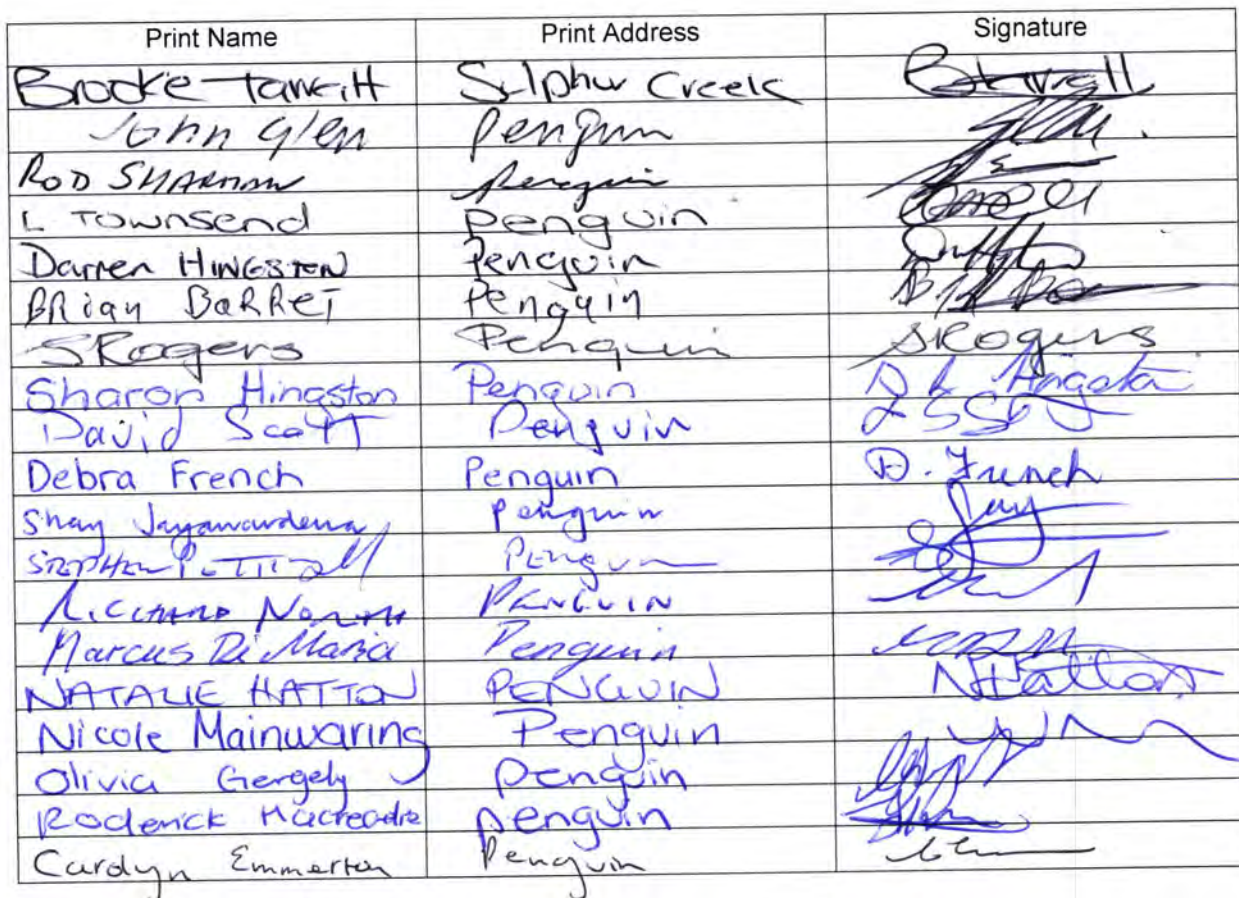 Print Name Print Address Signature
Brooke Sulphur Creek
John Glen Penguin
ROD SHARMAN Penguin
L Townsend Penguin
Darren HINGSTON Penguin
BRian BaRReT Penguin
SRogers Penguin SRogers
Sharon Hingston Penguin
David Scott Penguin
Debra French Penguin D. French
Shay Jayawardena Penguin Shay
STEPHEN Penguin
Penguin
Marcus Di Maria Penguin
NATALIE HATTON PENGUIN NHatton
Nicole Mainwaring Penguin
Olivia Gergely Penguin
Roderick Macreadie penguin
Carolyn Emmerton Penguin